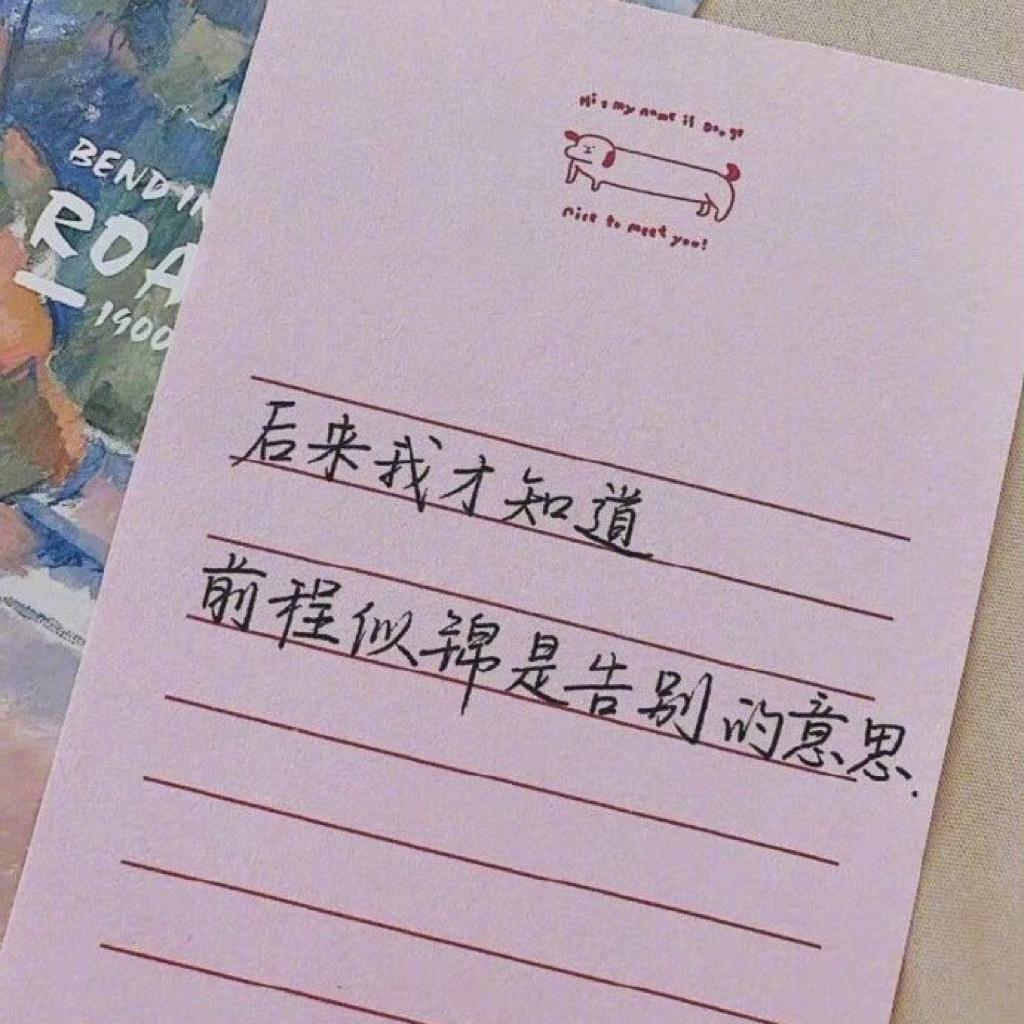 BENDIN
ROA
1900
Hi , my name is Dooge
nice to meet you!
后来我才知道
前程似锦是告别的意思.